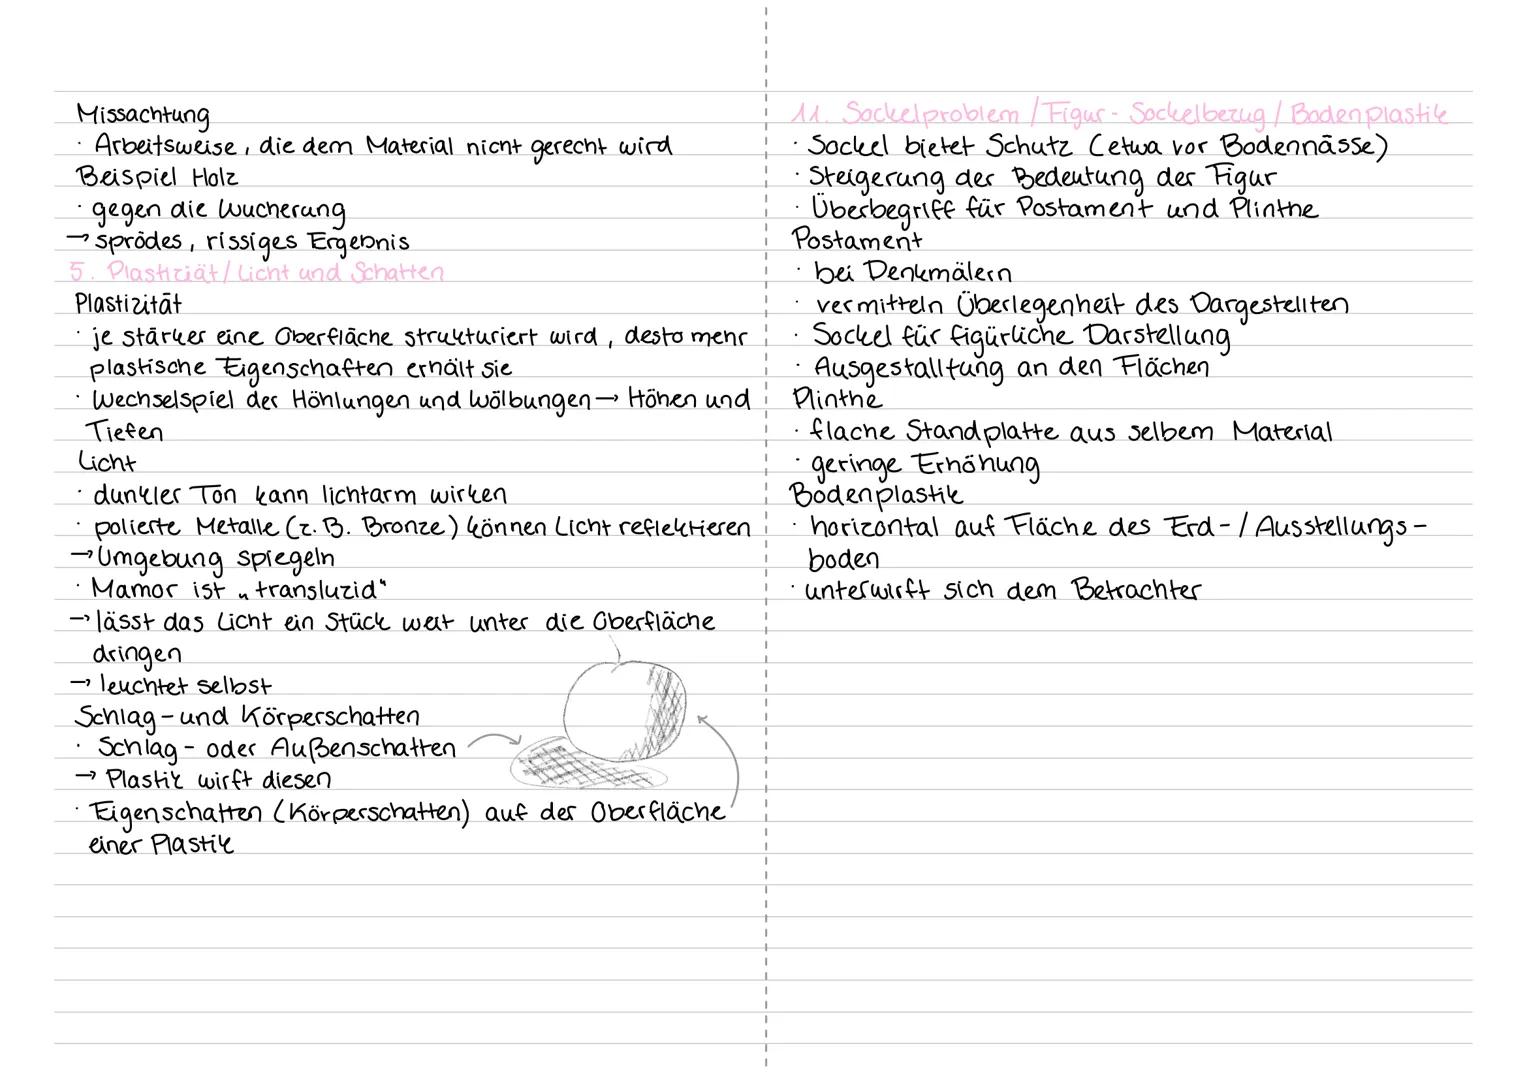 Missachtung
· Arbeitsweise, die dem Material nicht gerecht wird
Beispiel Holz
· gegen die Wucherung
→ sprödes, rissiges Ergebnis
5. Plastiziät/Licht und Schatten
Plastizität
· je stärker eine Oberfläche strukturiert wird, desto mehr
plastische Eigenschaften erhält sie
· Wechselspiel der Höhlungen und Wölbungen → Höhen und
Tiefen
Licht
· dunkler Ton kann lichtarm wirken
· polierte Metalle (z.B. Bronze) können Licht reflektieren
→ Umgebung spiegeln
· Mamor ist „transluzid“
→ lässt das Licht ein Stück weit unter die Oberfläche
dringen
→ leuchtet selbst
Schlag- und Körperschatten
· Schlag- oder Außenschatten
→ Plastik wirft diesen
· Eigenschatten (Körperschatten) auf der Oberfläche
einer Plastik
11. Sockelproblem/Figur-Sockelbezug/Bodenplastik
· Sockel bietet Schutz (etwa vor Bodennässe)
· Steigerung der Bedeutung der Figur
· Überbegriff für Postament und Plinthe
Postament
· bei Denkmälern
· vermitteln Überlegenheit des Dargestellten
· Sockel für figürliche Darstellung
· Ausgestalltung an den Flächen
Plinthe
· flache Standplatte aus selbem Material
· geringe Erhöhung
Bodenplastik
· horizontal auf Fläche des Erd-/Ausstellungs-
boden
· unterwirft sich dem Betrachter